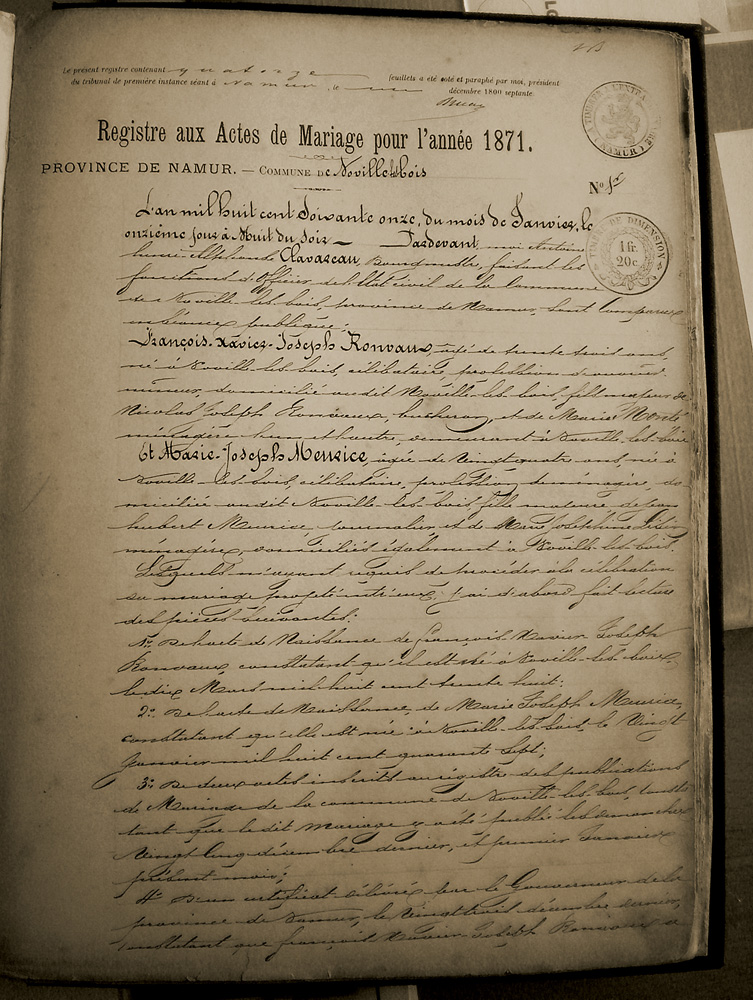 Le présent registre contenant quatorze feuillets a été coté et paraphé par moi, président
du tribunal de première instance séant à Namur, le décembre 1800 septante.
Registre aux Actes de Mariage pour l'année 1871.
PROVINCE DE NAMUR. — COMMUNE de Noville les bois
N° 1er
TIMBRE DE DIMENSION
1 fr.
20 c.
NAMUR
L'an mil huit cent Soixante onze, du mois de Janvier, le
onzième jour à Huit du Soir — Pardevant, moi Antoine
Alphonse Clavareau, Bourgmestre, faisant les
fonctions d'officier de l'état civil de la Commune
de Noville-les-bois, province de Namur, sont comparus
publique:
François-Xavier-Joseph Ronvaux, agé de trente trois ans,
né à Noville-les-bois, célibataire, profession d'ouvrier
mineur, domicilié au dit Noville-les-bois, fils majeur de
Nicolas Joseph Ronvaux, bucheron, et de Marie
ménagère, demeurant à Noville-les-bois
Et Marie-Joseph Meurice, agée de Vingt quatre ans, née à
Noville-les-bois, célibataire, profession de ménagère, do
miciliée au dit Noville-les-bois, fille majeure de Jean
hubert Meurice, journalier et de Marie Joséphine
ménagère, domiciliés également à Noville-les-bois.
Lesquels m'ayant requis de procéder à la célébration
du mariage projeté entr'eux, j'ai d'abord fait lecture
des pièces suivantes:
1° De l'acte de Naissance de François Xavier Joseph
Ronvaux, constatant qu'il est né à Noville-les-bois,
le dix Mars mil huit cent trente huit;
2° De l'acte de Naissance, de Marie Joseph Meurice,
constatant qu'elle est née à Noville-les-bois, le Vingt
Janvier mil huit cent quarante Sept;
3° De deux actes inscrits au régistre des publications
de Mariage de la commune de Noville-les-bois, consta
tant que le dit Mariage a été publié les dimanches
Vingt Cinq décembre dernier, et premier Janvier
présent mois;
4° D'un certificat délivré par le Gouverneur de la
province de Namur, le Vingt trois décembre dernier,
constatant que François Xavier Joseph Ronvaux a